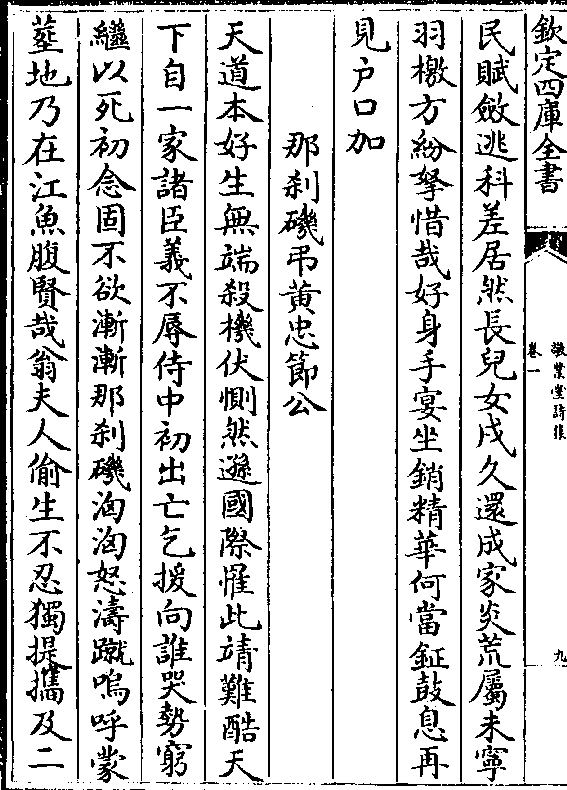 欽定四庫全書
敬業堂詩集
卷一
九
民賦斂逃科差居然長兒女戍久還成家炎荒屬未寧
羽檄方紛拏惜哉好身手宴坐銷精華何當鉦鼓息再
見户口加
那刹磯弔黄忠節公
天道本好生無端殺機伏惻然遜國際罹此靖難酷天
下自一家諸臣義不辱侍中初出亡乞援向誰哭勢窮
繼以死初念固不欲漸漸那刹磯洶洶怒濤蹴嗚呼䝉
塟地乃在江魚腹賢哉翁夫人偷生不忍獨提攜及二